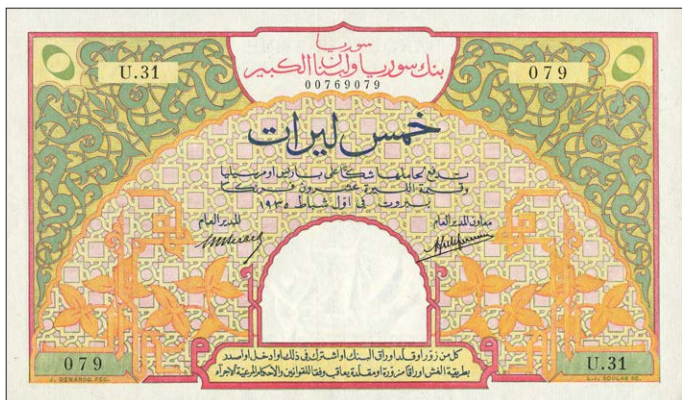 سوريا
بنك سوريا ولبنان الكبير
U.31
079
00769079
خمس ليرات
تدفع لحاملها شكا على باريس او مرسيليا
وقيمة الليرة عشرون فرنكا
بيروت في اول شباط ١٩٣٥
المدير العام
معاون المدير العام
079
U.31
كل من زور او قلد اوراق البنك او اشترك في ذلك او ادخل او اصدر
بطريقة الغش اوراقا مزورة او مقلدة يعاقب وفقا للقوانين والاحكام المرعية الاجراء